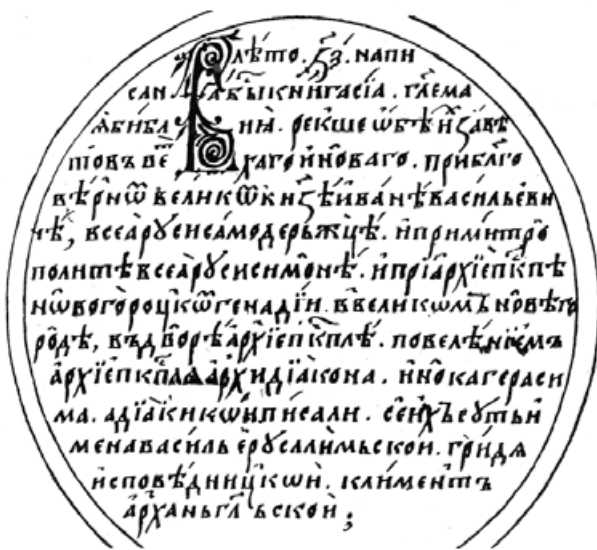 В лѣто ҂ꙁ҃з. напи
сан бы книга сїа. гл҃ема
ꙗ библия. рекше ѡбѣи ꙁавѣ
товъ ветхаго и новаго. при бл҃го
вѣрнѡⷨ великѡⷨ кн҃ꙁѣ иванѣ васильеви
чѣ, всеа рꙋси самодерьжцѣ. и при митро
политѣ всеа рꙋси симонѣ. и при архїеп҃кпѣ
нѡвогороцкѡⷨ генадїи. в великѡмъ новѣго
родѣ, въ дворѣ архїеп҃кплѣ. повелѣнїемъ
архїеп҃кпля архидїакона. инока гераси
ма. а дїаки кѡи писали. се ихъ сꙋть и
мена василь ерꙋсалимьской. гридя
исповѣдницкѡи. климентъ
арханьгл҃ьской;